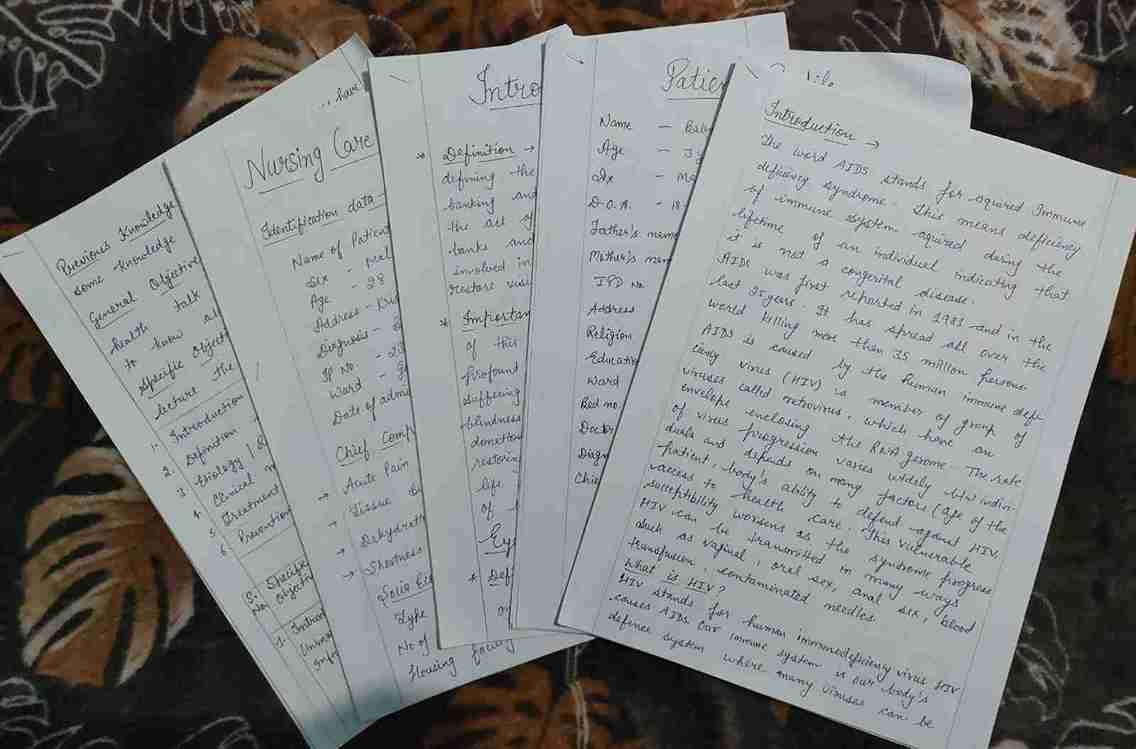 Previous Knowledge
some knowledge
General Objective
health talk
to know
Specific Objecti
lecture the
1. Introduction
2. Definition
3. Etiology
4. Clinical
5. Treatment
6. Prevention
S. Specific
No. Objective
1. Introd
have
Nursing Care
Identification data -
Name of Patient
Sex - Mal
Age - 28
Address - Kri
Diagnosis -
IP No -
Ward -
Date of admi
Chief Comp
→ Acute Pain
→ Tissue
→ Dehydrati
→ Shortness
Socio Eco
Type
No of
Housing facility
Intro
* Definition →
defining the
banking and
the act of
banks and
involved in
restore visi
* Importan
of this
profound
suffering
blindness
donation
restoring
life.
of
Eye
* Defi
Patien
Name - Baby
Age - 3
Dx - Ma
D.O.A. - 18
Father's name
Mother's nam
IPD No
Address
Religion
Educatio
Ward
Bed no.
Docto
Diagn
Chie
Introduction →
The word AIDS stands for aquired Immune
deficiency syndrome. This means deficiency
of immune system aquired during the
lifetime of an individual indicating that
it is not a congenital disease.
AIDS was first reported in 1981 and in the
last 25 years. It has spread all over the
world killing more than 35 million persons
AIDS is caused by the human immune defi-
ciency virus (HIV) is member of group of
viruses called retrovirus, which have an
envelope enclosing the RNA genome. The rate
of virus progression varies widely b/w indivi-
duals and depends on many factors (age of the
patient, body's ability to defend against HIV,
access to health care. This vulnerable
susceptibility worsens as the syndrome progress
HIV can be transmitted in many ways
such as vaginal, oral sex, anal sex, blood
transfusion, contaminated needles
What is HIV?
HIV stands for human immunodeficiency virus HIV
causes AIDS our immune system is our body's
defence system where many viruses can be